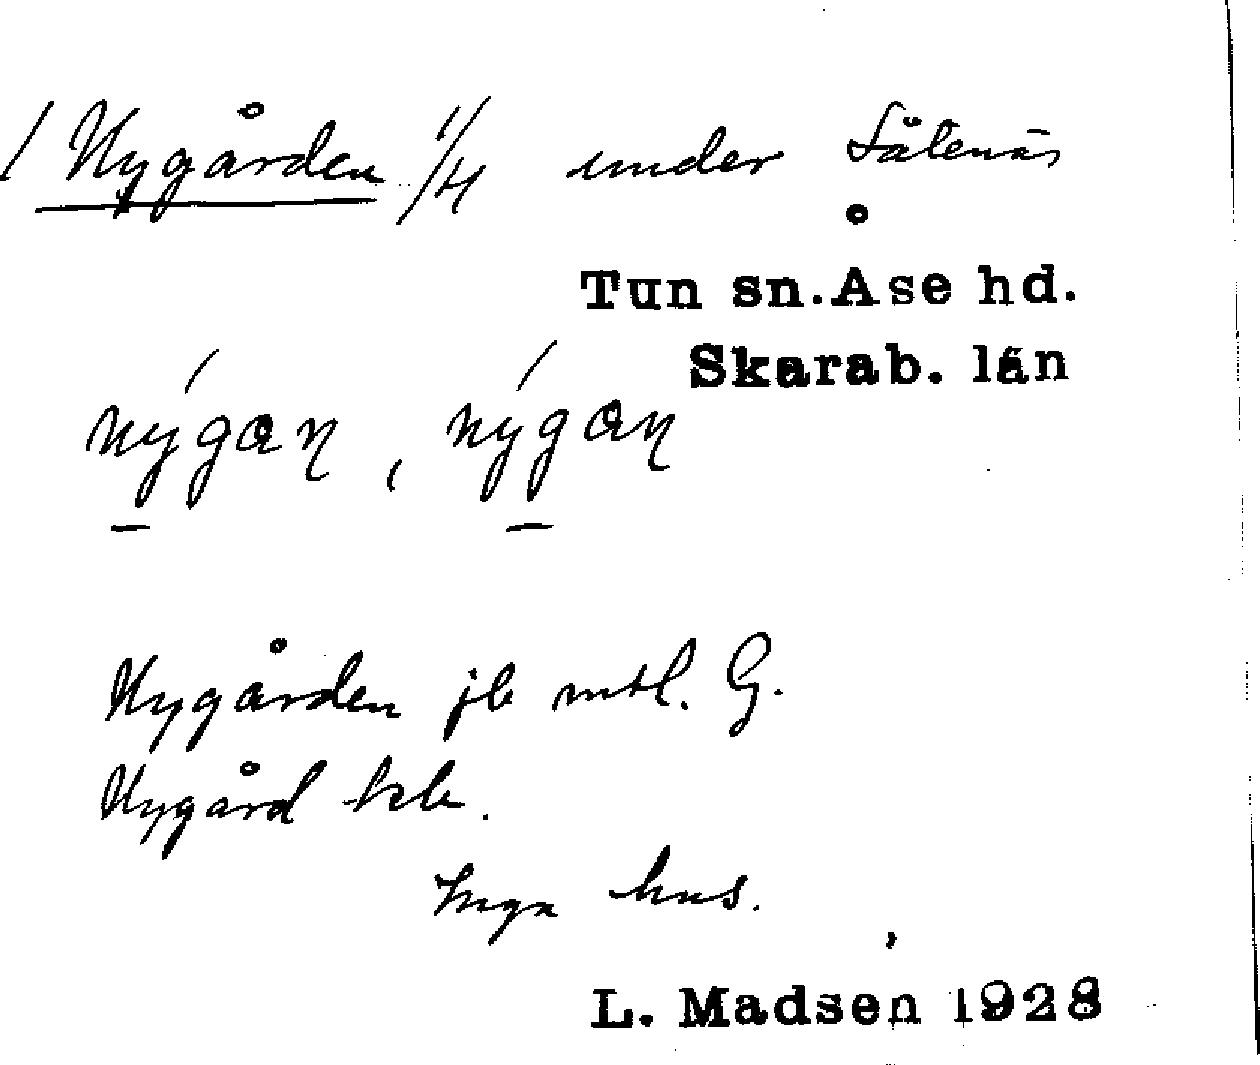 / Nygården 1/4 under Såtenäs
Tun sn. Åse hd.
Skarab. län
nýgan, nýgan
Nygården jb mtl. G.
Nygård kb.
Inga hus.
L. Madsen 1928